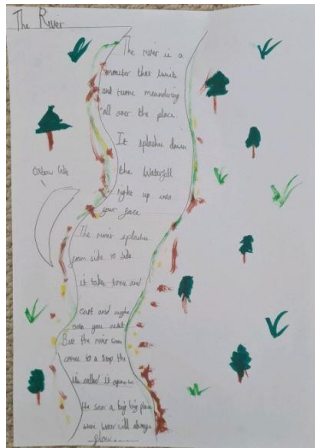 The River
The river is a
monster that twists
and turns meandering
all over the place
It splashes down
the Waterfall
right up into
your face
Oxbow lake
The river splashes
from side to side
it takes home and
and
you
But the river soon
comes to a stop the
called it
the sea a big big place
river will always
flow